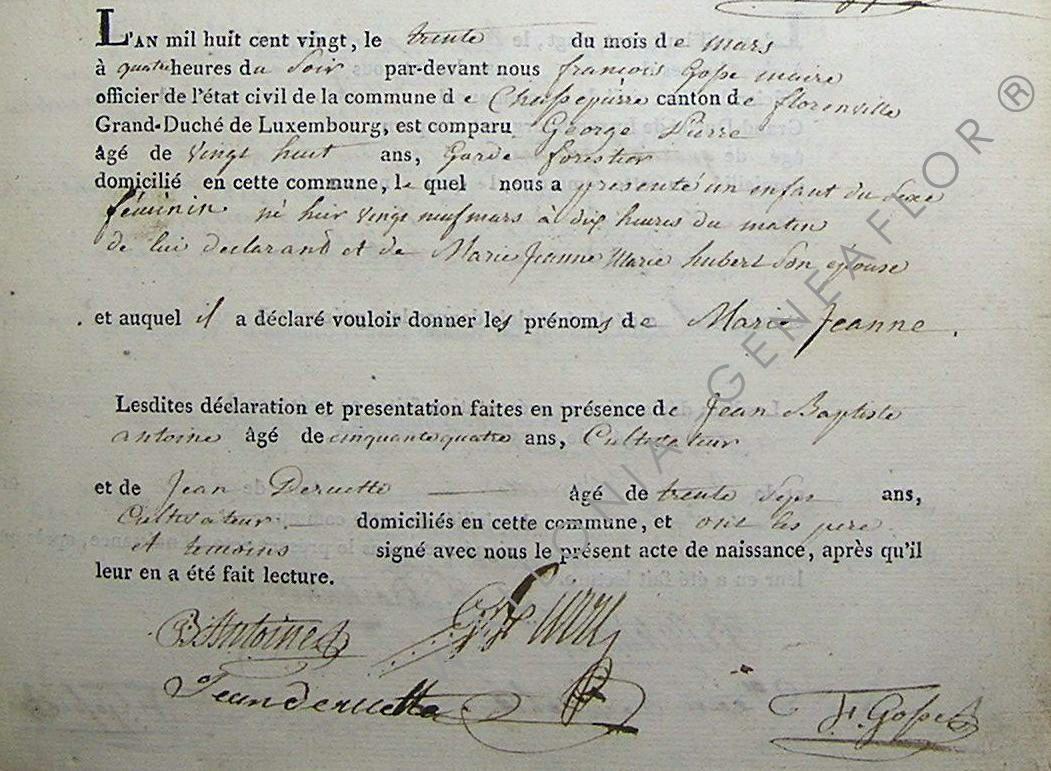 L'AN mil huit cent vingt, le trente du mois de mars
à quatre heures du Soir par-devant nous françois Gosse maire
officier de l'état civil de la commune de Chassepierre canton de florenville
Grand-Duché de Luxembourg, est comparu George Pierre
âgé de vingt huit ans, Garde forestier
domicilié en cette commune, le quel nous a presenté un enfant du Sexe
féminin né hier vingt neuf mars à dix heures du matin
de lui declarant et de Marie Jeanne Marie hubert Son epouse
et auquel il a déclaré vouloir donner les prénoms de Marie Jeanne.
Lesdites déclaration et presentation faites en présence de Jean Baptiste
antoine âgé de cinquante quatre ans, Cultivateur
et de Jean Deruette âgé de trente Sept ans,
Cultivateur domiciliés en cette commune, et ont les pere
et temoins signé avec nous le présent acte de naissance, après qu'il
leur en a été fait lecture.
JB Antoine
Jean deruette
F. Gosse
GENEAFLOR ®